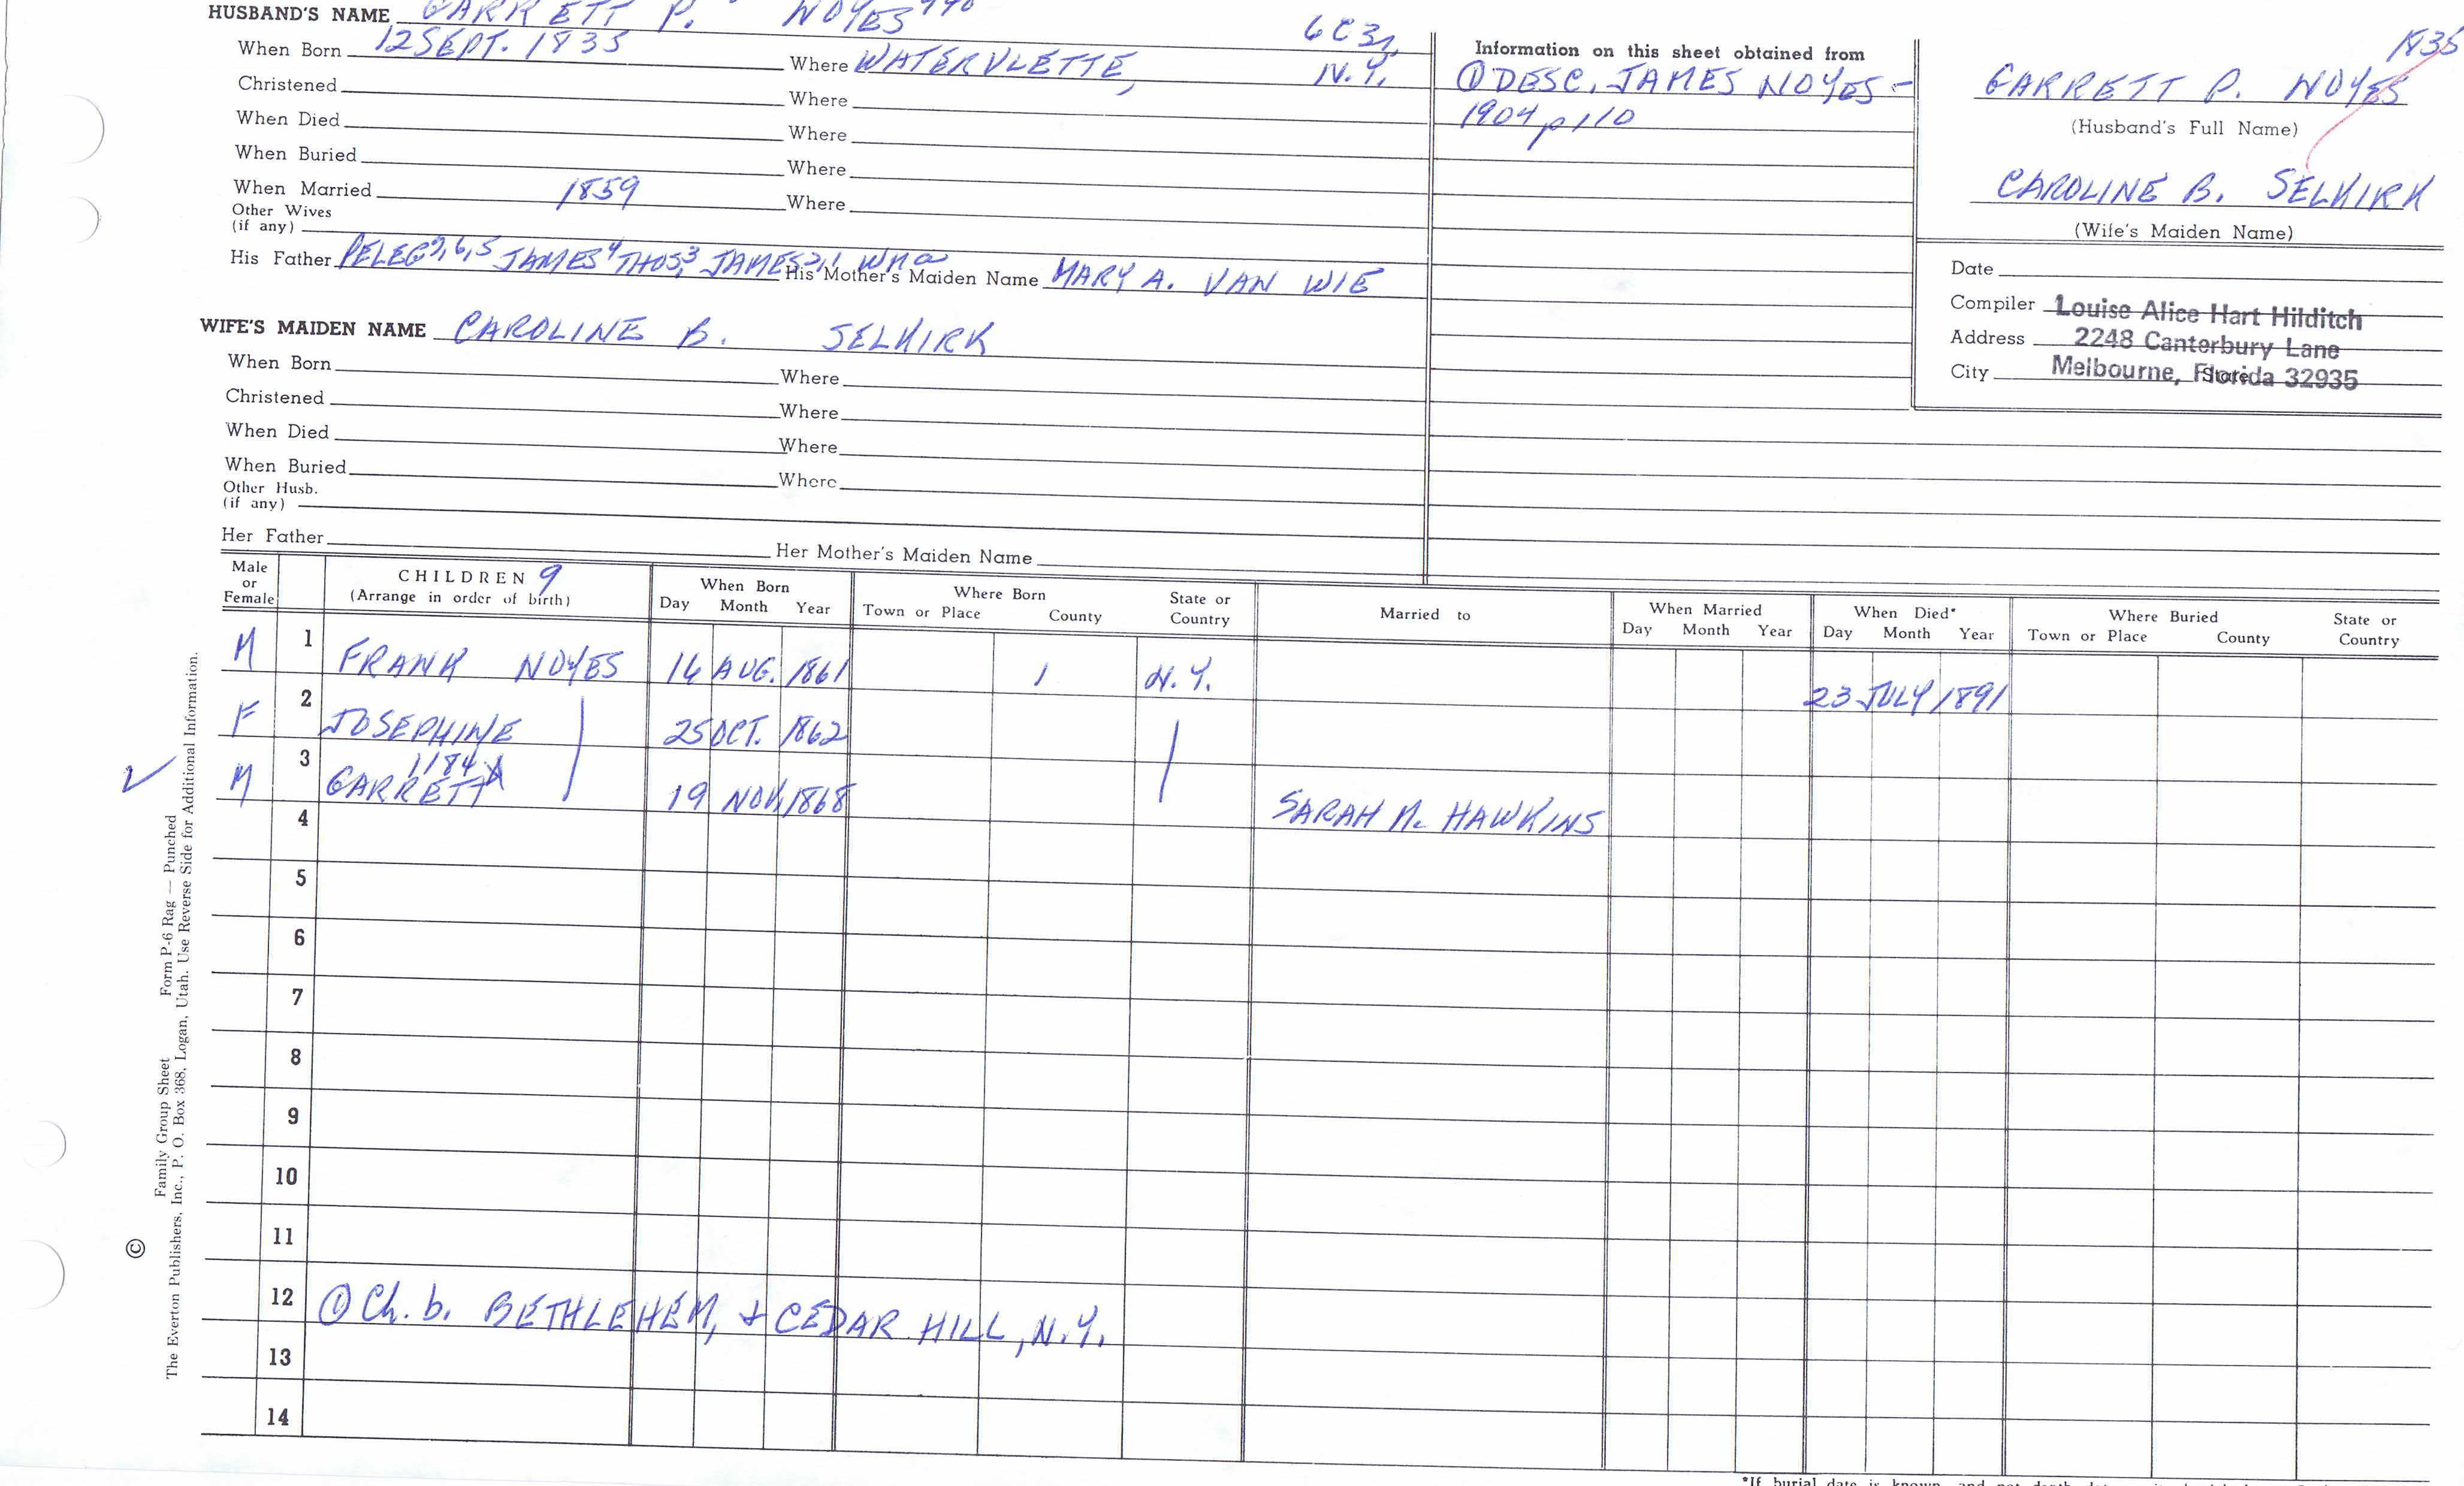 HUSBAND'S NAME GARRETT P. NOYES
6C3r
When Born 12 SEPT. 1835 Where WATERVLETTE, N.Y.
Christened Where
When Died Where
When Buried Where
When Married 1859 Where
Other Wives
(if any)
His Father PELEG 7,6,5 JAMES 4 THOS, 3 JAMES 2,1 Wm a His Mother's Maiden Name MARY A. VAN WIE
WIFE'S MAIDEN NAME CAROLINE B. SELKIRK
When Born Where
Christened Where
When Died Where
When Buried Where
Other Husb.
(if any)
Her Father Her Mother's Maiden Name
Information on this sheet obtained from
① DESC. JAMES NOYES -
1904 p 110
1835
GARRETT P. NOYES
(Husband's Full Name)
CAROLINE B. SELKIRK
(Wife's Maiden Name)
Date
Compiler Louise Alice Hart Hilditch
Address 2248 Canterbury Lane
City State
Melbourne, Florida 32935
Male
or
Female
CHILDREN 9
(Arrange in order of birth)
When Born
Day Month Year
Where Born
Town or Place County State or Country
Married to
When Married
Day Month Year
When Died*
Day Month Year
Where Buried
Town or Place County State or Country
M 1 FRANK NOYES 16 AUG. 1861 N.Y. 23 JULY 1891
F 2 JOSEPHINE 25 OCT. 1862
1184
✓ M 3 GARRETT 19 NOV. 1868 SARAH M. HAWKINS
4
5
6
7
8
9
10
11
12 ① Ch. b. BETHLEHEM, + CEDAR HILL, N.Y.
13
14
©
Family Group Sheet Form P-6 Rag — Punched
The Everton Publishers, Inc., P. O. Box 368, Logan, Utah. Use Reverse Side for Additional Information.
*If burial date is known and not death date